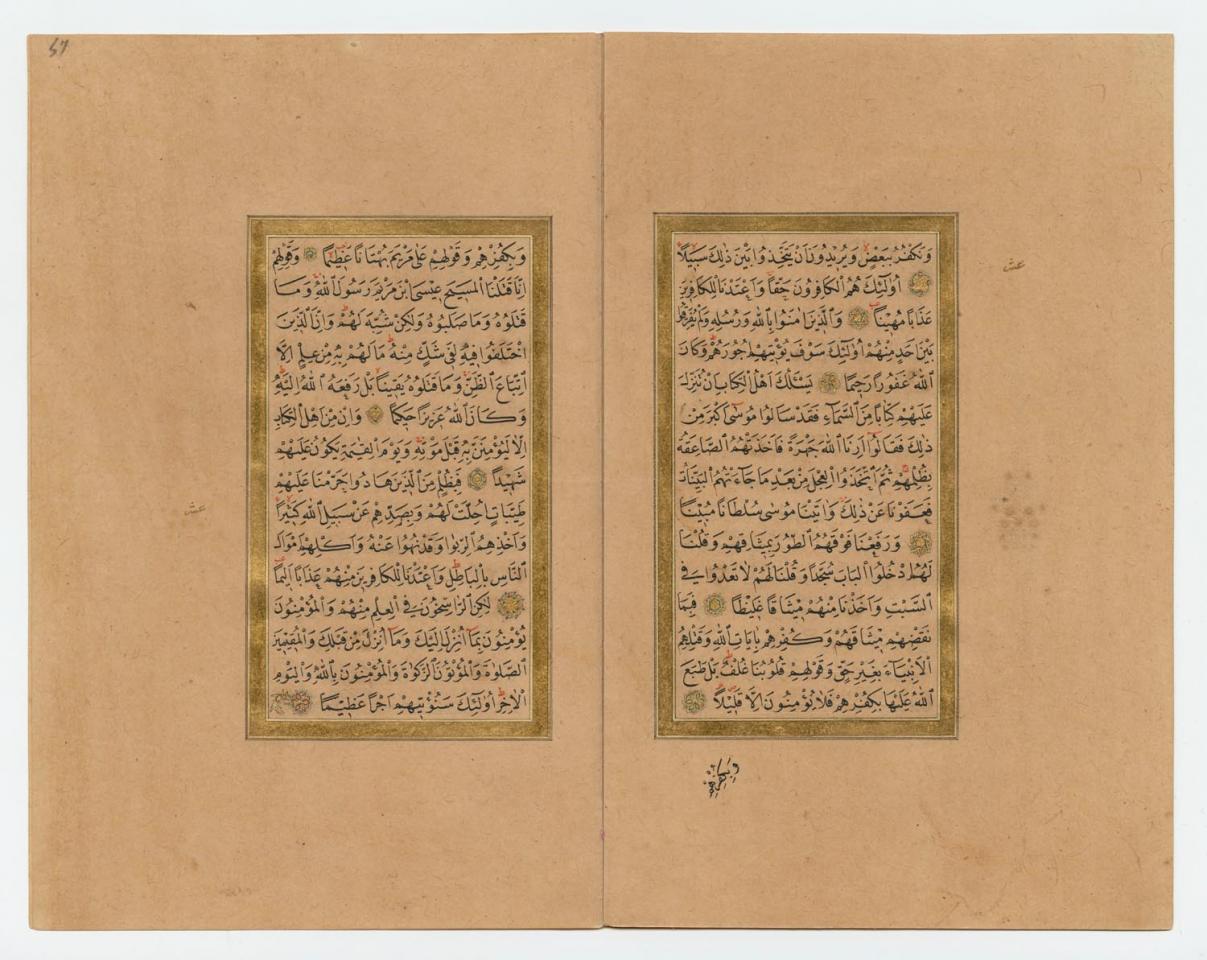 وَنَكْفُرُ بِبَعْضٍ وَيُرِيدُونَ اَنْ يَتَّخِذُوا بَيْنَ ذٰلِكَ سَبِيلًا
اُولٰئِكَ هُمُ الْكَافِرُونَ حَقًّا وَاَعْتَدْنَا لِلْكَافِرِينَ
عَذَابًا مُهِينًا وَالَّذِينَ اٰمَنُوا بِاللّٰهِ وَرُسُلِهِ وَلَمْ يُفَرِّقُوا
بَيْنَ اَحَدٍ مِنْهُمْ اُولٰئِكَ سَوْفَ يُؤْتِيهِمْ اُجُورَهُمْ وَكَانَ
اللّٰهُ غَفُورًا رَحِيمًا يَسْئَلُكَ اَهْلُ الْكِتَابِ اَنْ تُنَزِّلَ
عَلَيْهِمْ كِتَابًا مِنَ السَّمَاءِ فَقَدْ سَاَلُوا مُوسٰى اَكْبَرَ مِنْ
ذٰلِكَ فَقَالُوا اَرِنَا اللّٰهَ جَهْرَةً فَاَخَذَتْهُمُ الصَّاعِقَةُ
بِظُلْمِهِمْ ثُمَّ اتَّخَذُوا الْعِجْلَ مِنْ بَعْدِ مَا جَاءَتْهُمُ الْبَيِّنَاتُ
فَعَفَوْنَا عَنْ ذٰلِكَ وَاٰتَيْنَا مُوسٰى سُلْطَانًا مُبِينًا
وَرَفَعْنَا فَوْقَهُمُ الطُّورَ بِمِيثَاقِهِمْ وَقُلْنَا
لَهُمُ ادْخُلُوا الْبَابَ سُجَّدًا وَقُلْنَا لَهُمْ لَا تَعْدُوا فِي
السَّبْتِ وَاَخَذْنَا مِنْهُمْ مِيثَاقًا غَلِيظًا فَبِمَا
نَقْضِهِمْ مِيثَاقَهُمْ وَكُفْرِهِمْ بِاٰيَاتِ اللّٰهِ وَقَتْلِهِمُ
الْاَنْبِيَاءَ بِغَيْرِ حَقٍّ وَقَوْلِهِمْ قُلُوبُنَا غُلْفٌ بَلْ طَبَعَ
اللّٰهُ عَلَيْهَا بِكُفْرِهِمْ فَلَا يُؤْمِنُونَ اِلَّا قَلِيلًا
وَبِكُفْرِهِمْ
عش
وَبِكُفْرِهِمْ وَقَوْلِهِمْ عَلٰى مَرْيَمَ بُهْتَانًا عَظِيمًا وَقَوْلِهِمْ
اِنَّا قَتَلْنَا الْمَسِيحَ عِيسَى ابْنَ مَرْيَمَ رَسُولَ اللّٰهِ وَمَا
قَتَلُوهُ وَمَا صَلَبُوهُ وَلٰكِنْ شُبِّهَ لَهُمْ وَاِنَّ الَّذِينَ
اخْتَلَفُوا فِيهِ لَفِي شَكٍّ مِنْهُ مَا لَهُمْ بِهِ مِنْ عِلْمٍ اِلَّا
اتِّبَاعَ الظَّنِّ وَمَا قَتَلُوهُ يَقِينًا بَلْ رَفَعَهُ اللّٰهُ اِلَيْهِ
وَكَانَ اللّٰهُ عَزِيزًا حَكِيمًا وَاِنْ مِنْ اَهْلِ الْكِتَابِ
اِلَّا لَيُؤْمِنَنَّ بِهِ قَبْلَ مَوْتِهِ وَيَوْمَ الْقِيٰمَةِ يَكُونُ عَلَيْهِمْ
شَهِيدًا فَبِظُلْمٍ مِنَ الَّذِينَ هَادُوا حَرَّمْنَا عَلَيْهِمْ
طَيِّبَاتٍ اُحِلَّتْ لَهُمْ وَبِصَدِّهِمْ عَنْ سَبِيلِ اللّٰهِ كَثِيرًا
وَاَخْذِهِمُ الرِّبٰوا وَقَدْ نُهُوا عَنْهُ وَاَكْلِهِمْ اَمْوَالَ
النَّاسِ بِالْبَاطِلِ وَاَعْتَدْنَا لِلْكَافِرِينَ مِنْهُمْ عَذَابًا اَلِيمًا
لٰكِنِ الرَّاسِخُونَ فِي الْعِلْمِ مِنْهُمْ وَالْمُؤْمِنُونَ
يُؤْمِنُونَ بِمَا اُنْزِلَ اِلَيْكَ وَمَا اُنْزِلَ مِنْ قَبْلِكَ وَالْمُقِيمِينَ
الصَّلٰوةَ وَالْمُؤْتُونَ الزَّكٰوةَ وَالْمُؤْمِنُونَ بِاللّٰهِ وَالْيَوْمِ
الْاٰخِرِ اُولٰئِكَ سَنُؤْتِيهِمْ اَجْرًا عَظِيمًا
عش